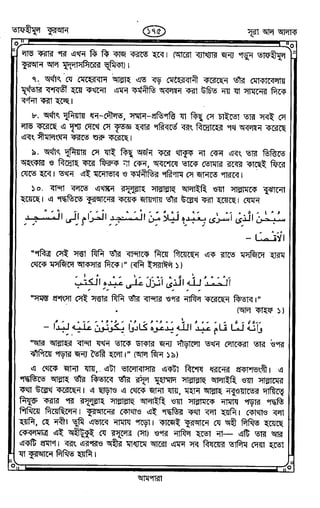 তাফহীমুল কুরআন
১৭৫
সূরা আল আলাক
লাভ করার পর এখন কি কি কাজ করতে হবে। (আরো ব্যাখ্যার জন্য পড়ুন তাফহীমুল
কুরআন আল মুদ্দাসসিরের ভূমিকা)।
৭. অর্থাৎ যে মেহেরবান আল্লাহ এত বড় মেহেরবানী করেছেন তাঁর মোকাবেলায়
মূর্খতার বশবর্তী হয়ে কখনো এমন কর্মনীতি অবলম্বন করা উচিত নয় যা সামনের দিকে
বর্ণনা করা হচ্ছে।
৮. অর্থাৎ দুনিয়ায় ধন-দৌলত, সম্মান-প্রতিপত্তি যা কিছু সে চাইতো তার সবই সে
লাভ করেছে এ দৃশ্য দেখে সে কৃতজ্ঞ হবার পরিবর্তে বরং বিদ্রোহের পথ অবলম্বন করেছে
এবং সীমালংঘন করতে শুরু করেছে।
৯. অর্থাৎ দুনিয়ায় সে যাই কিছু অর্জন করে থাকুক না কেন এবং তার ভিত্তিতে
অহংকার ও বিদ্রোহ করে ফিরুক না কেন, অবশেষে তাকে তোমার রবের কাছেই ফিরে
যেতে হবে। তখন এই মনোভাব ও কর্মনীতির পরিণাম সে জানতে পারবে।
১০. বান্দা বলতে এখানে রসূলুল্লাহ সাল্লাল্লাহু আলাইহি ওয়া সাল্লামকে বুঝানো
হয়েছে। এ পদ্ধতিতে কুরআনের কয়েক জায়গায় তাঁর উল্লেখ করা হয়েছে। যেমন
سُبْحٰنَ الَّذِىْ اَسْرٰى بِعَبْدِهٖ لَيْلًا مِّنَ الْمَسْجِدِ الْحَرَامِ اِلَى الْمَسْجِدِ
الْاَقْصَا -
"পবিত্র সেই সত্তা যিনি তাঁর বান্দাকে নিয়ে গিয়েছেন এক রাতে মসজিদে হারাম
থেকে মসজিদে আকসার দিকে।" (বনি ইসরাঈল ১)
اَلْحَمْدُ لِلّٰهِ الَّذِىْ اَنْزَلَ عَلٰى عَبْدِهِ الْكِتٰبَ
"সমস্ত প্রশংসা সেই সত্তার যিনি তাঁর বান্দার ওপর নাযিল করেছেন কিতাব।"
(আল কাহফ ১)
وَاَنَّهٗ لَمَّا قَامَ عَبْدُ اللّٰهِ يَدْعُوْهُ كَادُوْا يَكُوْنُوْنَ عَلَيْهِ لِبَدًا -
"আর আল্লাহর বান্দা যখন তাকে ডাকার জন্য দাঁড়ালো তখন লোকেরা তার ওপর
ঝাঁপিয়ে পড়ার জন্য তৈরি হলো।" (আল জিন ১৯)
এ থেকে জানা যায়, এটা ভালোবাসার একটা বিশেষ ধরনের প্রকাশভংগী। এ
পদ্ধতিতে আল্লাহ তাঁর কিতাবে তাঁর রসূল মুহাম্মাদ সাল্লাল্লাহু আলাইহি ওয়া সাল্লামের
কথা উল্লেখ করেছেন। এ ছাড়াও এ থেকে জানা যায়, মহান আল্লাহ নবুওয়াতের দায়িত্বে
নিযুক্ত করার পর রসূলুল্লাহ সাল্লাল্লাহু আলাইহি ওয়া সাল্লামকে নামায পড়ার পদ্ধতি
শিখিয়ে দিয়েছিলেন। কুরআনের কোথাও এই পদ্ধতির কথা বলা হয়নি। কোথাও বলা
হয়নি, হে নবী! তুমি এভাবে নামায পড়ো। কাজেই কুরআনে যে অহী লিখিত হয়েছে
কেবলমাত্র এই অহীটুকুই যে রসূলের (সা) ওপর নাযিল হতো না— এটি তার আর
একটি প্রমাণ। বরং এরপরও অহীর মাধ্যমে আরো এমন সব বিষয়ের তালিম দেয়া হতো
যা কুরআনে লিখিত হয়নি।
আমপারা